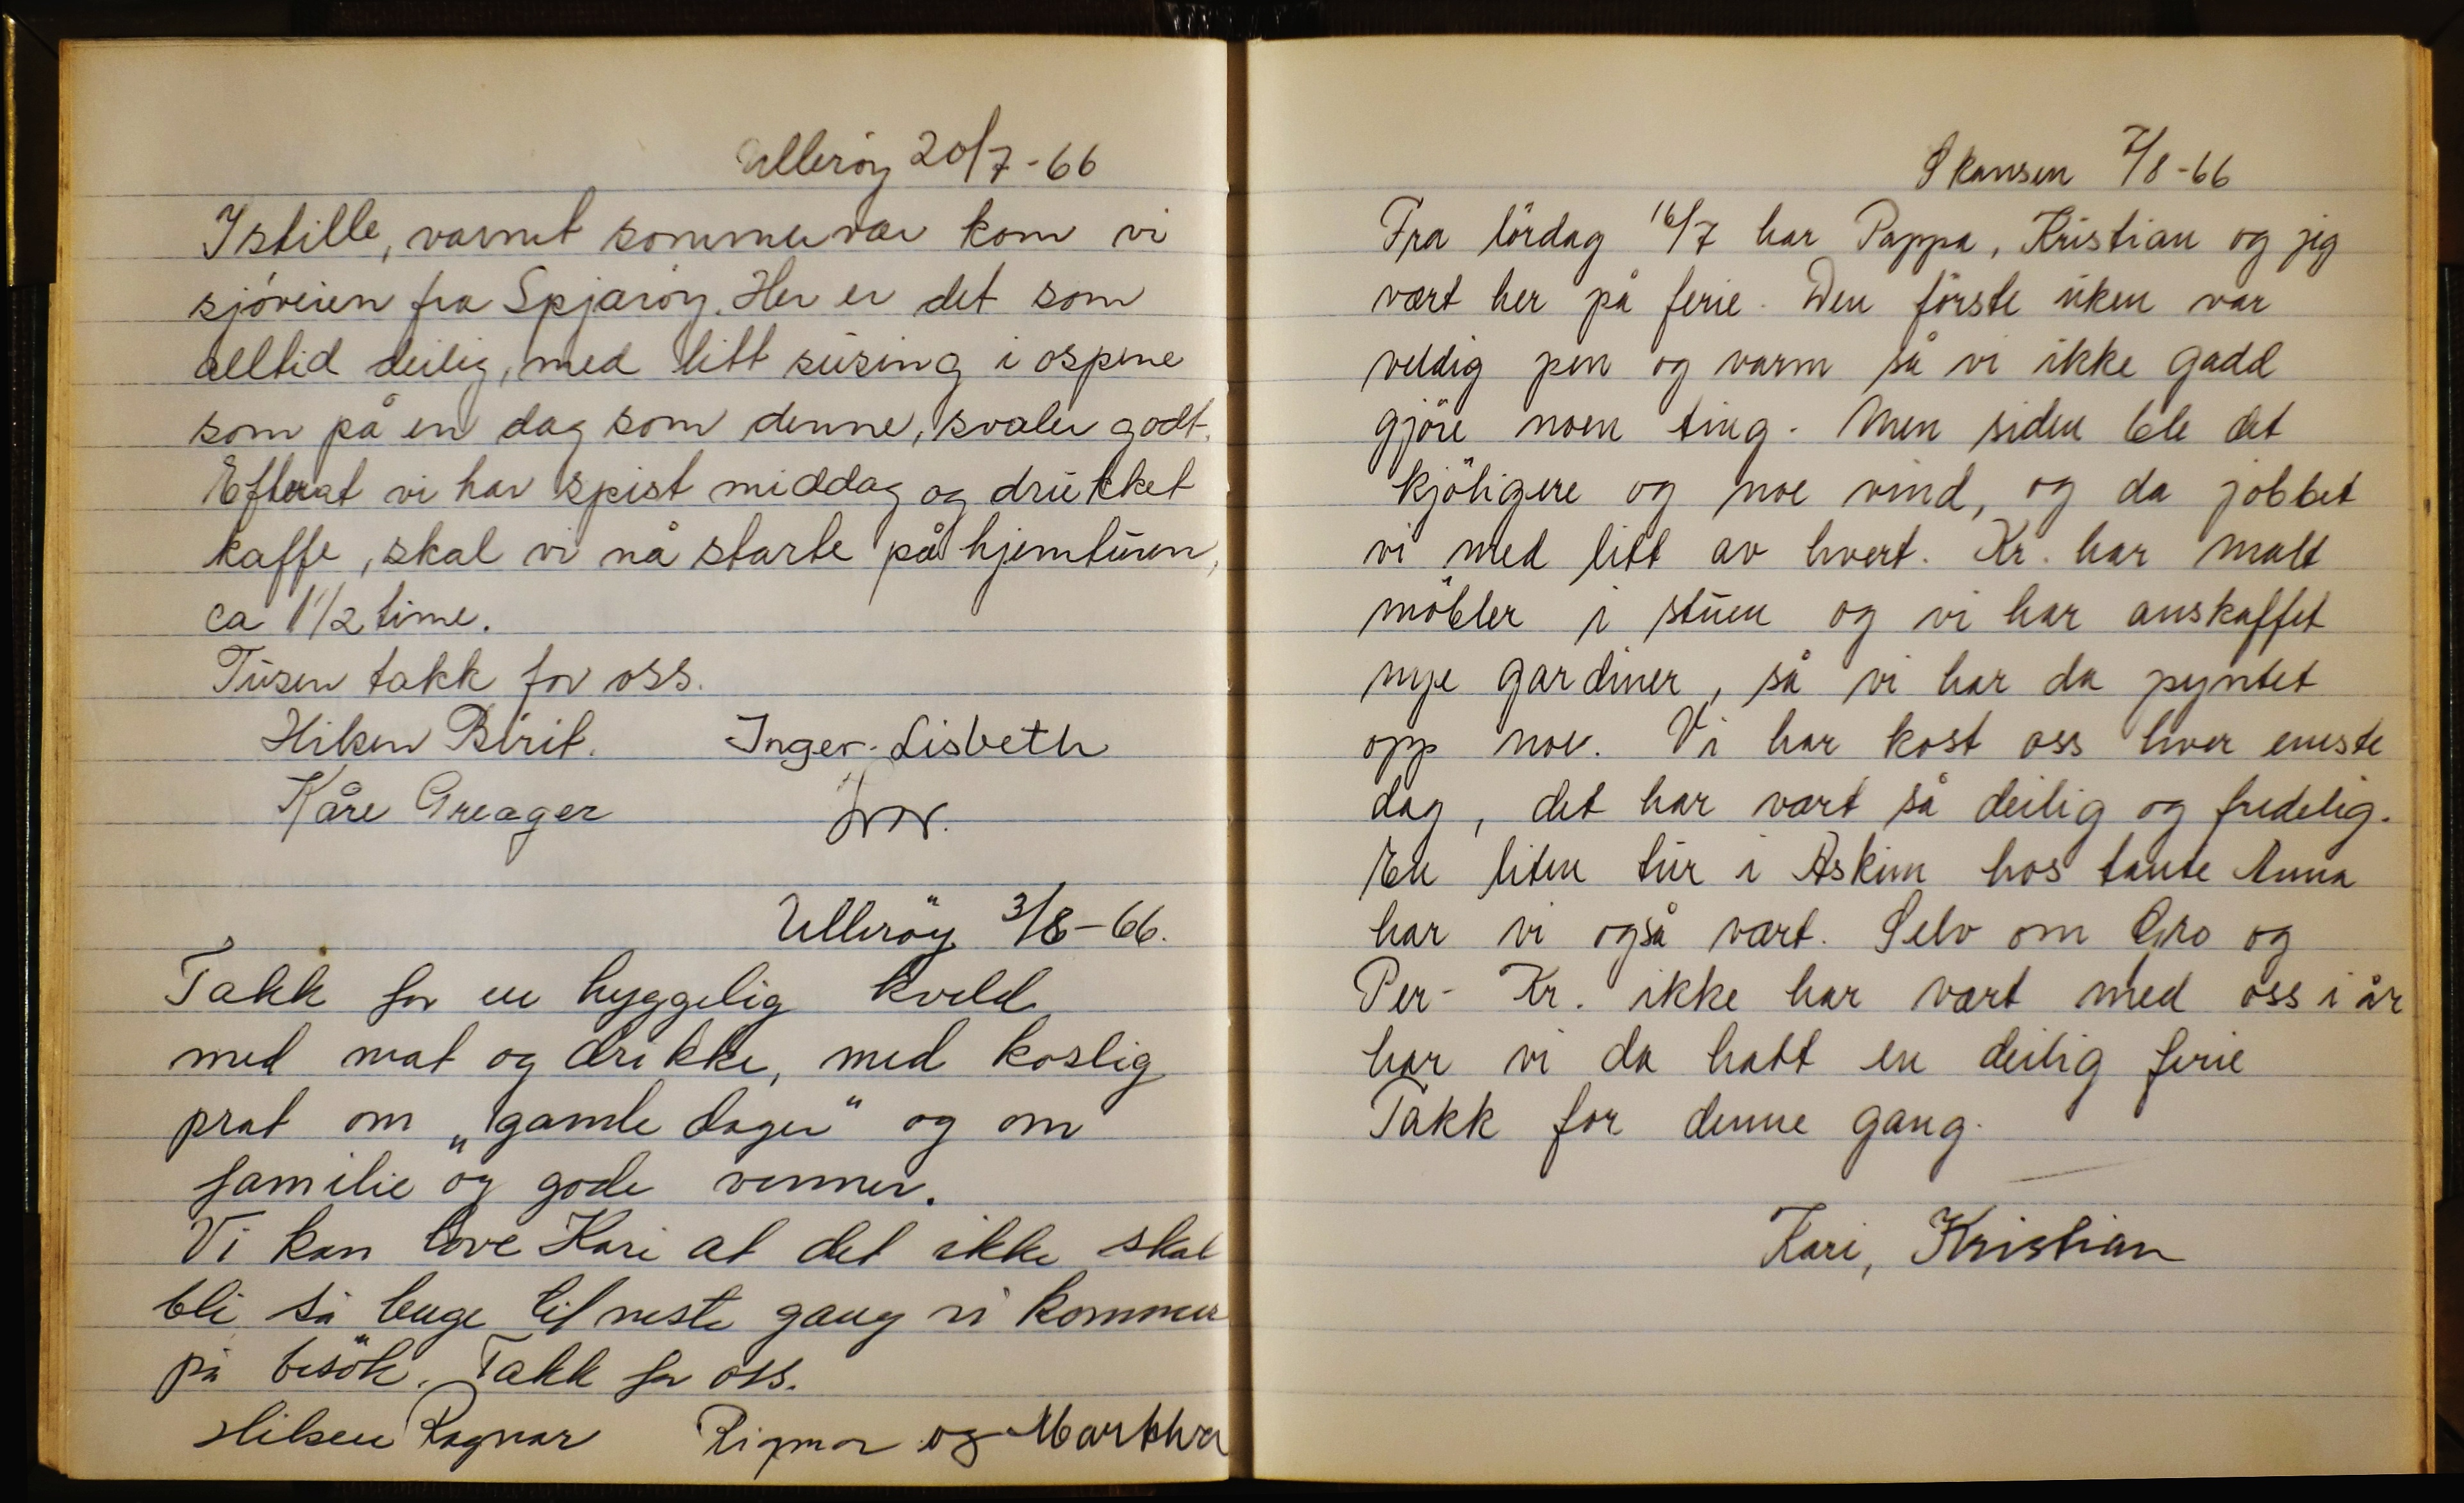 Ullerøy 20/7-66
I stille, varmt sommervær kom vi
sjøveien fra Spjærøy. Her er det som
alltid deilig, med litt susing i ospene
som på en dag som denne, svaler godt.
Efterat vi har spist middag og drukket
kaffe, skal vi nå starte på hjemturen,
ca 1 1/2 time.
Tusen takk for oss.
Hilsen Berit. Inger-Lisbeth
Kåre Greager
Ulleröy 3/8-66.
Takk for en hyggelig kveld
med mat og drikke, med koslig
prat om „gamle dager“ og om
familie og gode venner.
Vi kan love Kari at det ikke skal
bli så lenge til neste gang vi kommer
på besök. Takk for oss.
Hilsen Ragnar Rigmor og Markhva
Skansen 7/8-66
Fra lördag 16/7 har Pappa, Kristian og jeg
vært her på ferie. Den förste uken var
veldig pen og varm så vi ikke gadd
gjöre noen ting. Men siden ble det
kjöligere og noe vind, og da jobbet
vi med litt av hvert. Kr. har malt
möbler i stuen og vi har anskaffet
nye gardiner, så vi har da pyntet
opp noe. Vi har kost oss hver eneste
dag, det har vært så deilig og fredelig.
En liten tur i Askim hos tante Anna
har vi også vært. Selv om Gro og
Per-Kr. ikke har vært med oss i år
har vi da hatt en deilig ferie
Takk for denne gang.
Kari, Kristian